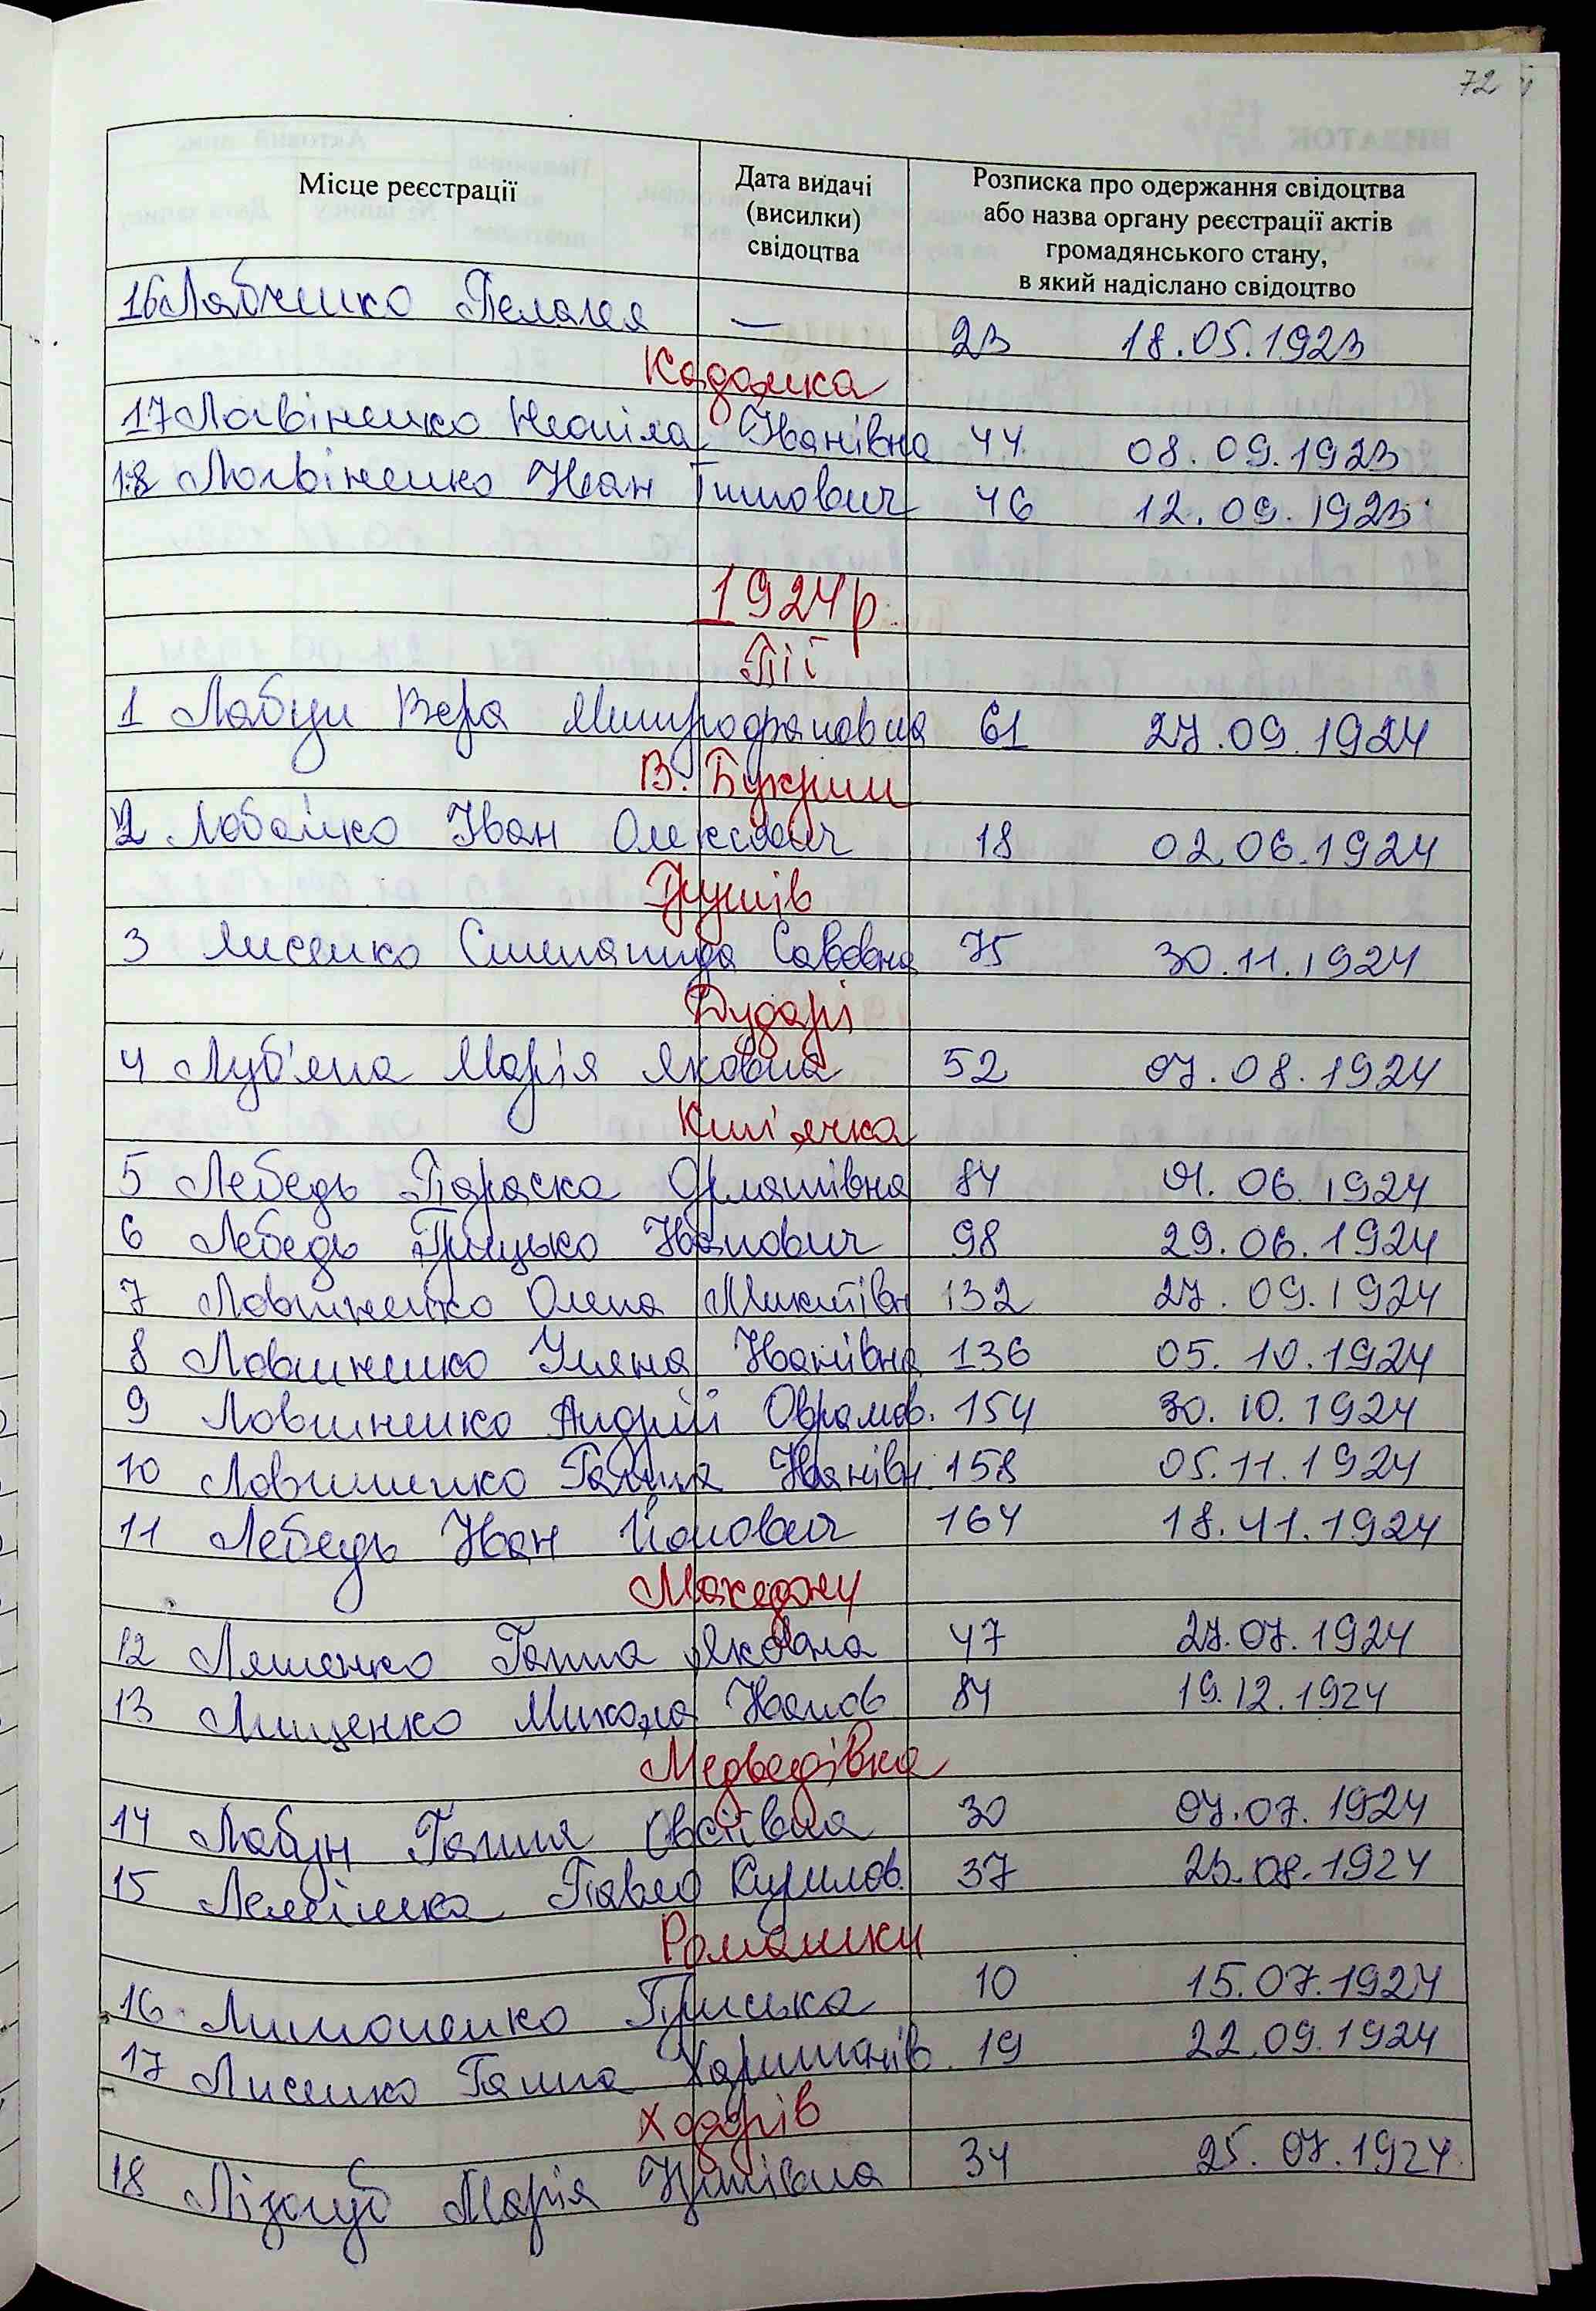 72
Місце реєстрації
Дата видачі
(висилки)
свідоцтва
Розписка про одержання свідоцтва
або назва органу реєстрації актів
громадянського стану,
в який надіслано свідоцтво
16 Лябченко Пелагея — 23 18.05.1923
Кадомка
17 Логвіненко Неоніла Іванівна 44 08.09.1923
18 Логвіненко Іван Тимович 46 12.09.1923
1924р
Пії
1 Лабун Вера Митрофановна 61 27.09.1924
В. Букрин
2 Лобайко Іван Олексович 18 02.06.1924
Грушів
3 Лисенко Степанида Савовна 75 30.11.1924
Дударі
4 Луб'яна Марія Яковна 52 07.08.1924
Кип'ячка
5 Лебедь Параска Юрлашівна 84 01.06.1924
6 Лебедь Грицько Іванович 98 29.06.1924
7 Ловиненко Олена Микитівн 132 27.09.1924
8 Ловиненко Уляна Іванівна 136 05.10.1924
9 Ловиненко Андрій Оврамов. 154 30.10.1924
10 Ловиненко Галина Іванівн. 158 05.11.1924
11 Лебедь Іван Йонович 164 18.11.1924
Македони
12 Ляшенко Ганна Яковна 47 27.07.1924
13 Лищенко Микола Іванов 84 19.12.1924
Медведівка
14 Лабун Ганна Овсіївна 30 07.07.1924
15 Лемішка Павло Курилов. 37 23.08.1924
Ромашки
16 Лимоненко Приська 10 15.07.1924
17 Лисенко Ганна Харитонів. 19 22.09.1924
Ходорів
18 Лізогуб Марія 34 25.07.1924